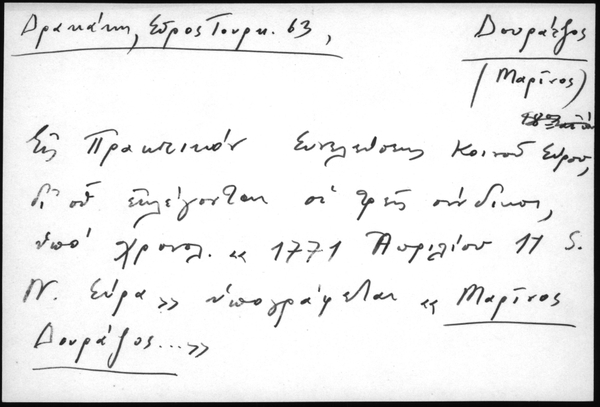 Δρακάκη, Σῦρος Τουρκ. 63,
Δουρᾶτζος
(Μαρῖνος)
Εἰς Πρακτικὸν Συνελεύσεως Κοινοῦ Σύρου,
δι' οὗ ἐκλέγονται οἱ τρεῖς σύνδικοι,
ὑπὸ χρονολ. «1771 Ἀπριλίου 11 S.
N. Σύρα» ὑπογράφεται «Μαρῖνος
Δουράτζος...»